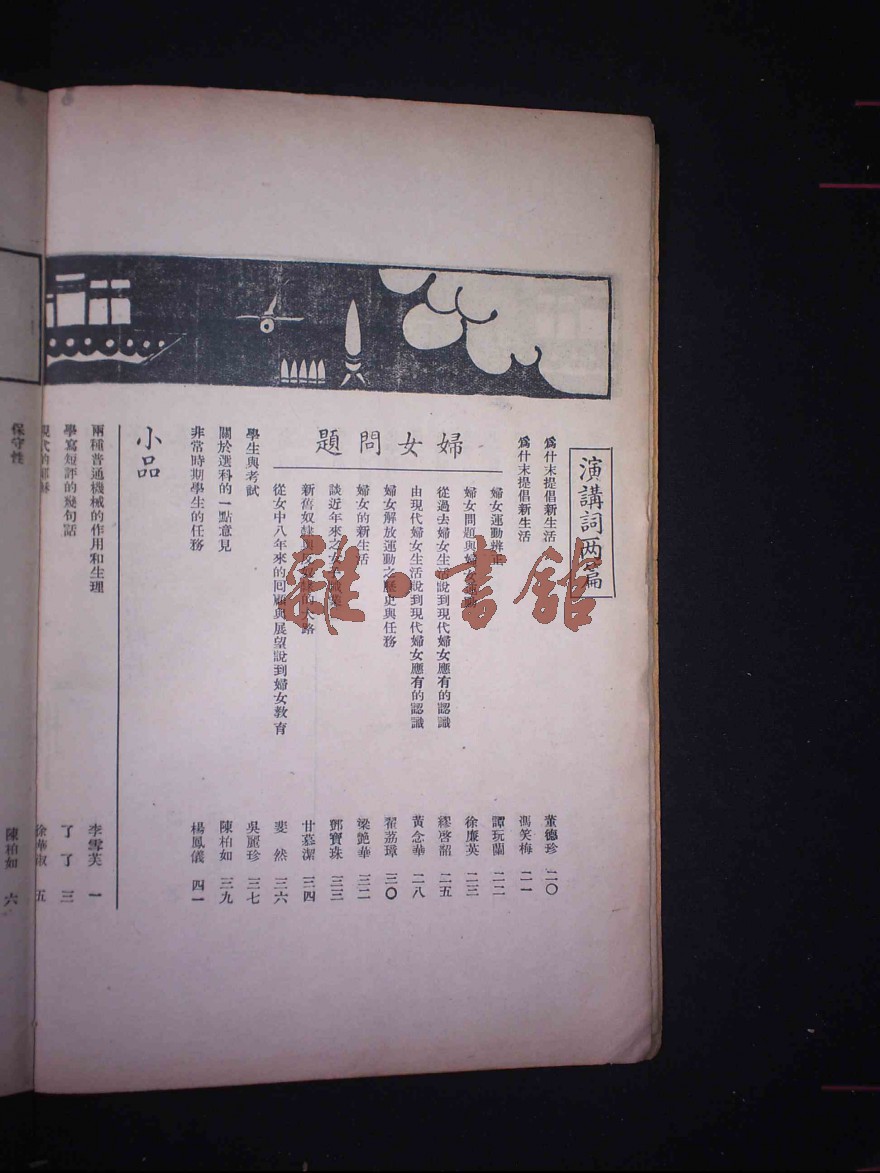 演講詞两篇
為什末提倡新生活 董德珍 二〇
為什末提倡新生活 馮笑梅 二一
婦女問題
婦女運動辨正 譚玩蘭 二二
婦女問題與婦女運動 徐廉英 二三
從過去婦女生活說到現代婦女應有的認識 繆啓韶 二五
由現代婦女生活說到現代婦女應有的認識 黃念華 二八
婦女解放運動之歷史與任務 翟荔璋 三〇
婦女的新生活 梁艷華 三二
談近年來之女子職業 鄧寶珠 三三
新舊奴隸與 的大路 甘慕潔 三四
從女中八年來的回顧與展望說到婦女教育 斐然 三六
學生與考試 吳麗珍 三七
關於選科的一點意見 陳柏如 三九
非常時期學生的任務 楊鳳儀 四一
小品
兩種普通機械的作用和生理 李雪芙 一
學寫短評的幾句話 了了 三
現代的 徐華淑 五
保守性 陳柏如 六
雜·書館